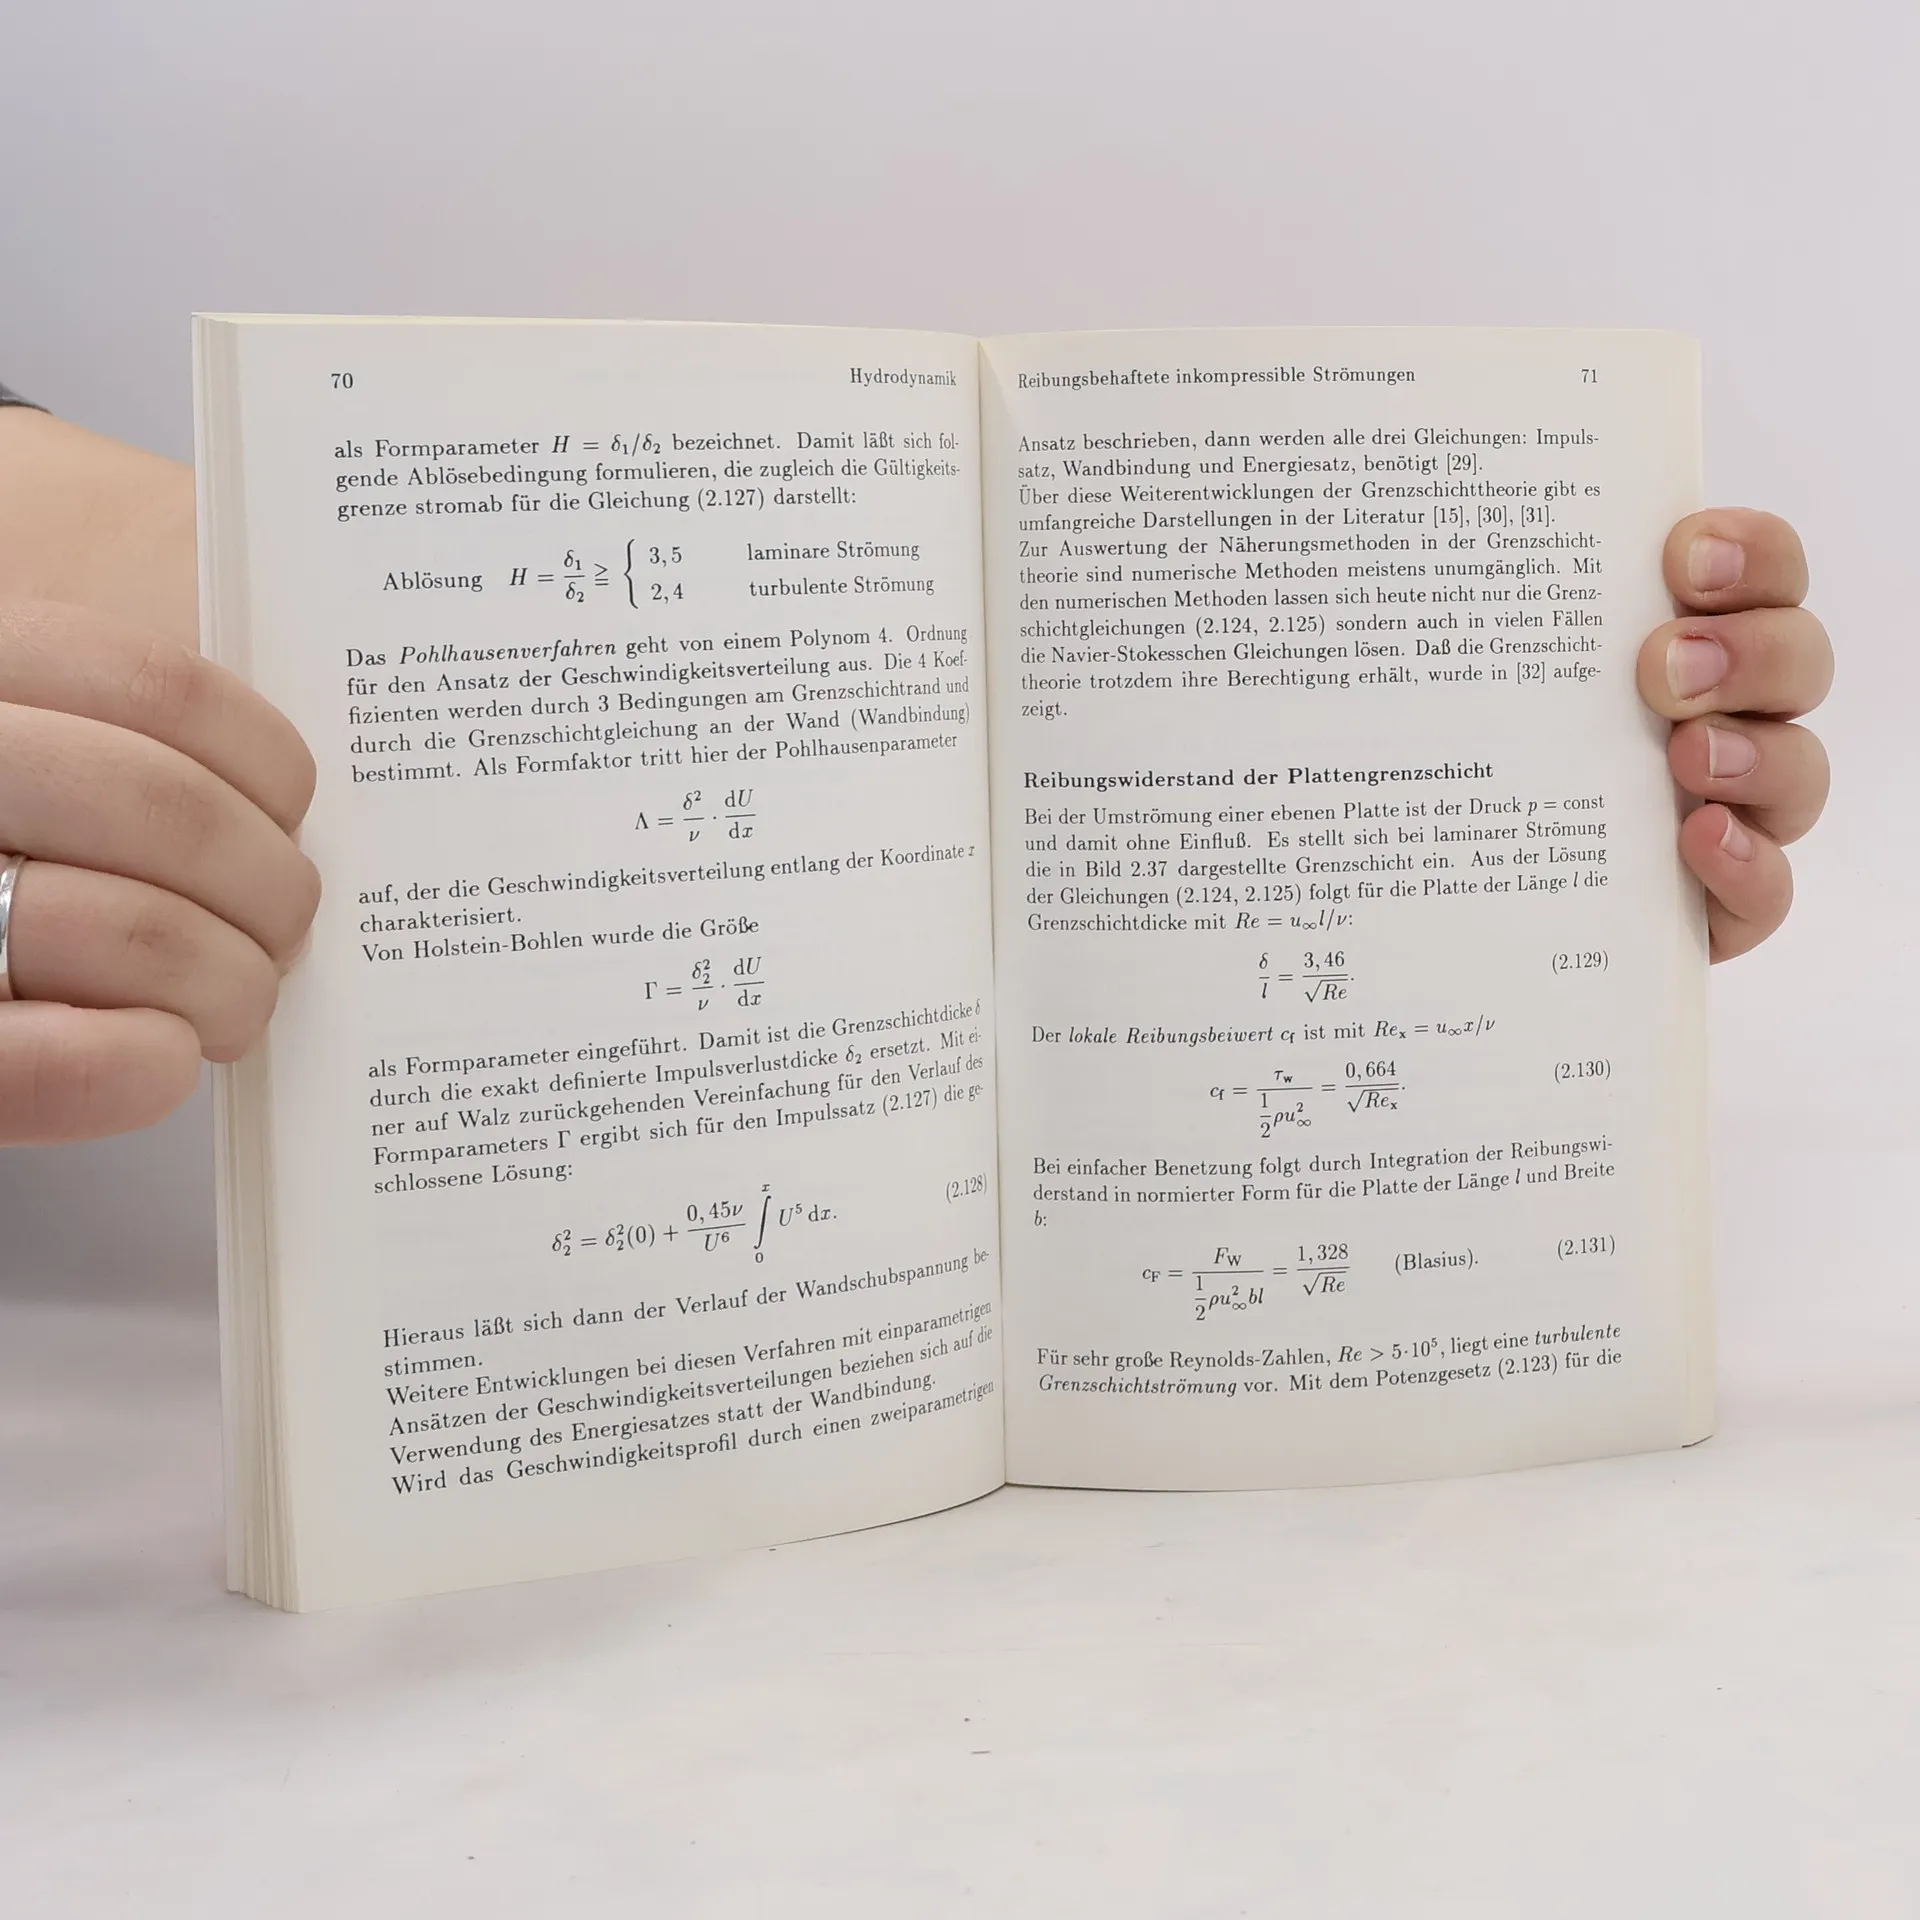 70 Hydrodynamik
als Formparameter H = δ₁/δ₂ bezeichnet. Damit läßt sich fol-
gende Ablösebedingung formulieren, die zugleich die Gültigkeits-
grenze stromab für die Gleichung (2.127) darstellt:
Ablösung H = δ₁/δ₂ ≧ { 3,5 laminare Strömung
2,4 turbulente Strömung
Das Pohlhausenverfahren geht von einem Polynom 4. Ordnung
für den Ansatz der Geschwindigkeitsverteilung aus. Die 4 Koef-
fizienten werden durch 3 Bedingungen am Grenzschichtrand und
durch die Grenzschichtgleichung an der Wand (Wandbindung)
bestimmt. Als Formfaktor tritt hier der Pohlhausenparameter
Λ = δ²/ν · dU/dx
auf, der die Geschwindigkeitsverteilung entlang der Koordinate x
charakterisiert.
Von Holstein-Bohlen wurde die Größe
Γ = δ₂²/ν · dU/dx
als Formparameter eingeführt. Damit ist die Grenzschichtdicke δ
durch die exakt definierte Impulsverlustdicke δ₂ ersetzt. Mit ei-
ner auf Walz zurückgehenden Vereinfachung für den Verlauf des
Formparameters Γ ergibt sich für den Impulssatz (2.127) die ge-
schlossene Lösung:
δ₂² = δ₂²(0) + 0,45ν/U⁶ ∫₀ˣ U⁵ dx. (2.128)
Hieraus läßt sich dann der Verlauf der Wandschubspannung be-
stimmen.
Weitere Entwicklungen bei diesen Verfahren mit einparametrigen
Ansätzen der Geschwindigkeitsverteilungen beziehen sich auf die
Verwendung des Energiesatzes statt der Wandbindung.
Wird das Geschwindigkeitsprofil durch einen zweiparametrigen
Reibungsbehaftete inkompressible Strömungen 71
Ansatz beschrieben, dann werden alle drei Gleichungen: Impuls-
satz, Wandbindung und Energiesatz, benötigt [29].
Über diese Weiterentwicklungen der Grenzschichttheorie gibt es
umfangreiche Darstellungen in der Literatur [15], [30], [31].
Zur Auswertung der Näherungsmethoden in der Grenzschicht-
theorie sind numerische Methoden meistens unumgänglich. Mit
den numerischen Methoden lassen sich heute nicht nur die Grenz-
schichtgleichungen (2.124, 2.125) sondern auch in vielen Fällen
die Navier-Stokesschen Gleichungen lösen. Daß die Grenzschicht-
theorie trotzdem ihre Berechtigung erhält, wurde in [32] aufge-
zeigt.
Reibungswiderstand der Plattengrenzschicht
Bei der Umströmung einer ebenen Platte ist der Druck p = const
und damit ohne Einfluß. Es stellt sich bei laminarer Strömung
die in Bild 2.37 dargestellte Grenzschicht ein. Aus der Lösung
der Gleichungen (2.124, 2.125) folgt für die Platte der Länge l die
Grenzschichtdicke mit Re = u∞l/ν:
δ/l = 3,46/√Re. (2.129)
Der lokale Reibungsbeiwert cf ist mit Reₓ = u∞x/ν
cf = τw/(½ρu∞²) = 0,664/√Reₓ. (2.130)
Bei einfacher Benetzung folgt durch Integration der Reibungswi-
derstand in normierter Form für die Platte der Länge l und Breite
b:
cF = FW/(½ρu∞²bl) = 1,328/√Re (Blasius). (2.131)
Für sehr große Reynolds-Zahlen, Re > 5·10⁵, liegt eine turbulente
Grenzschichtströmung vor. Mit dem Potenzgesetz (2.123) für die